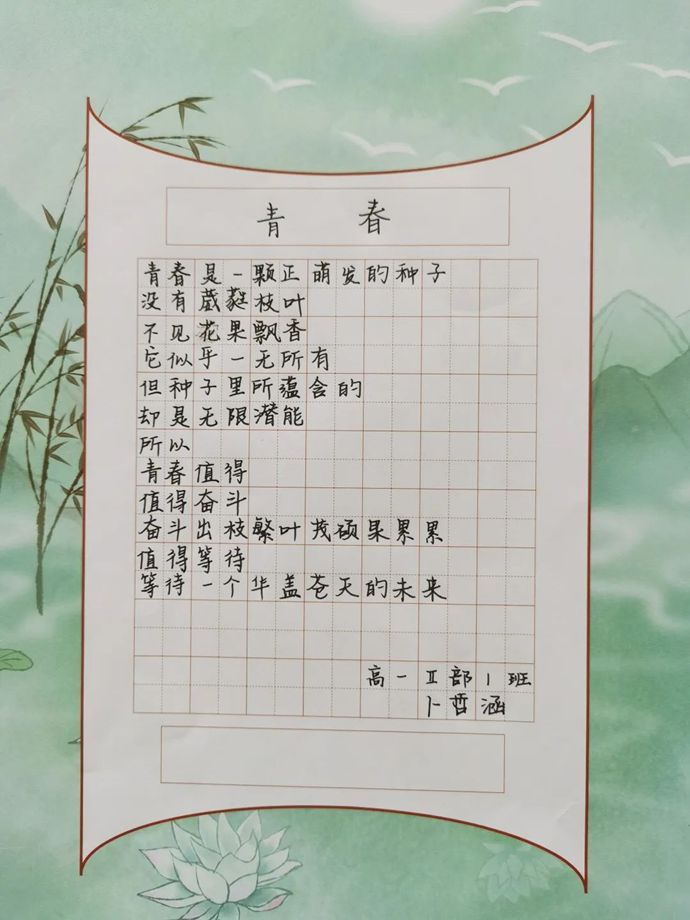 青春
青春是一颗正萌发的种子
没有葳蕤枝叶
不见花果飘香
它似乎一无所有
但种子里所蕴含的
却是无限潜能
所以
青春值得
值得奋斗
奋斗出枝繁叶茂硕果累累
值得等待
等待一个华盖苍天的未来
高一Ⅱ部1班
卜哲涵